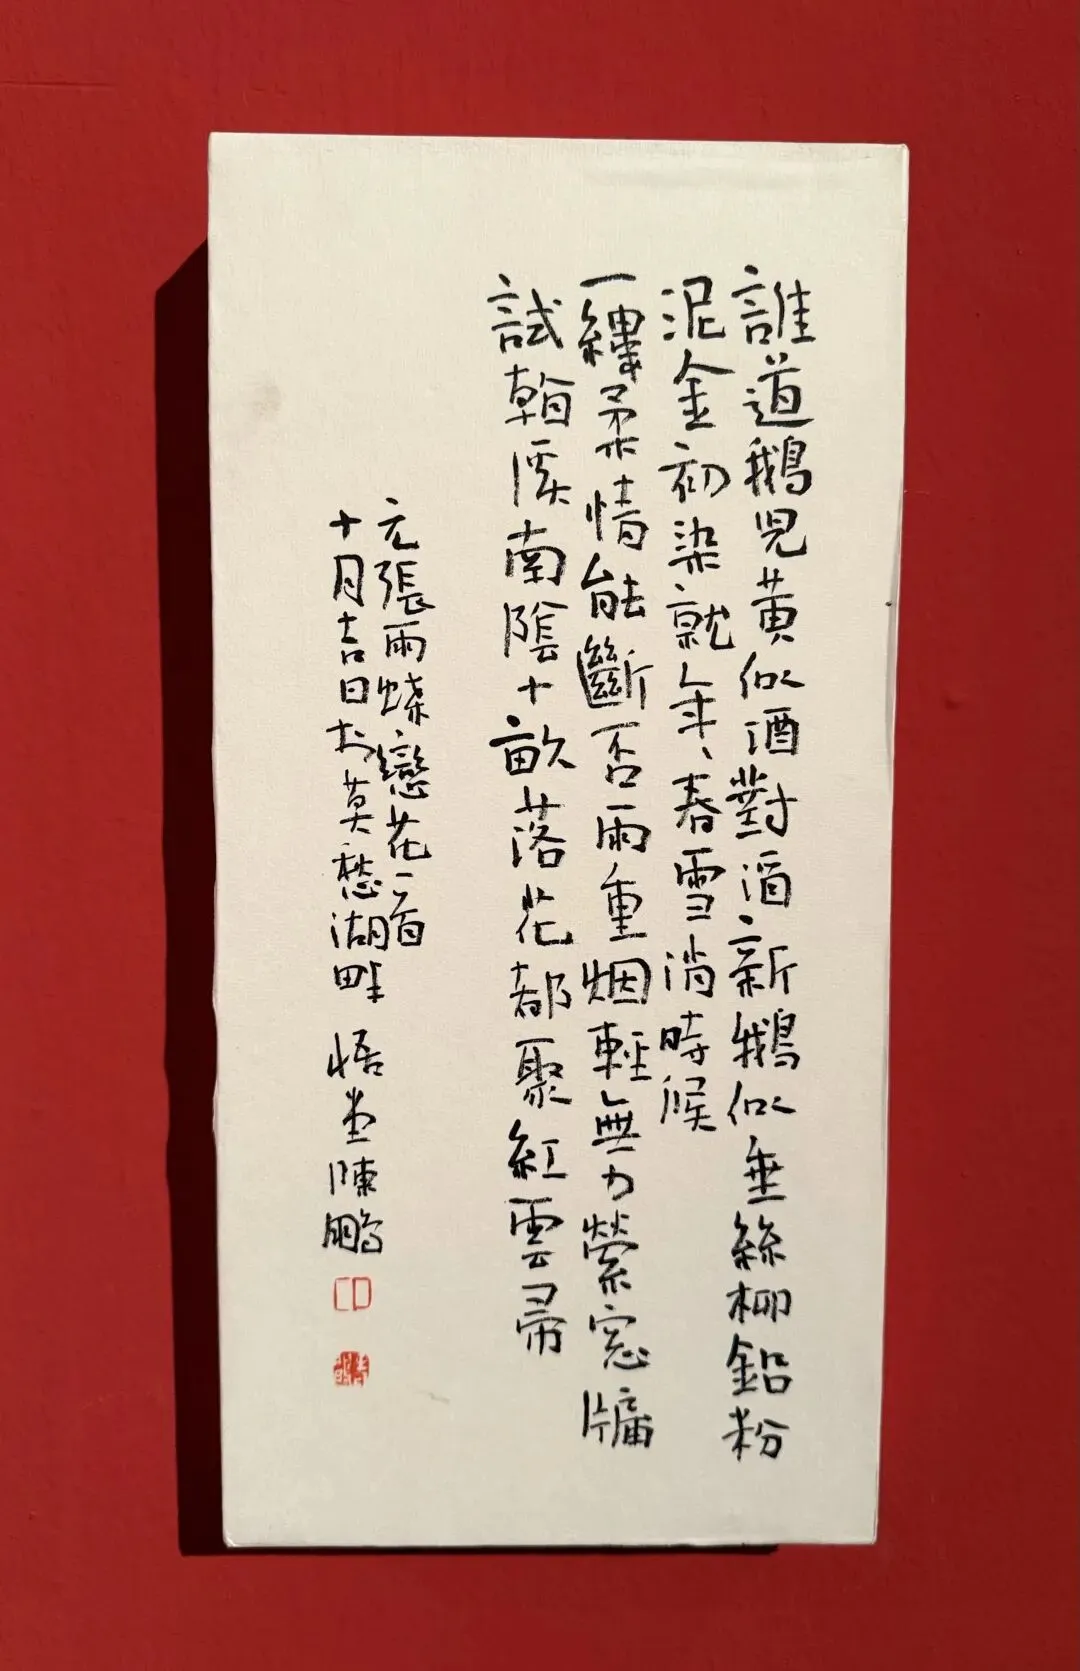 誰道鵝兒黃似酒對酒新鵝似垂絲柳鉛粉
泥金初染就年〻春雪消時候
一縷柔情能斷否雨重烟輕無力縈窓牖
試翰溪南陰十畝落花都聚紅雲帚
元張雨蝶戀花一首
十月吉日於莫愁湖畔 悟堂陳鵬